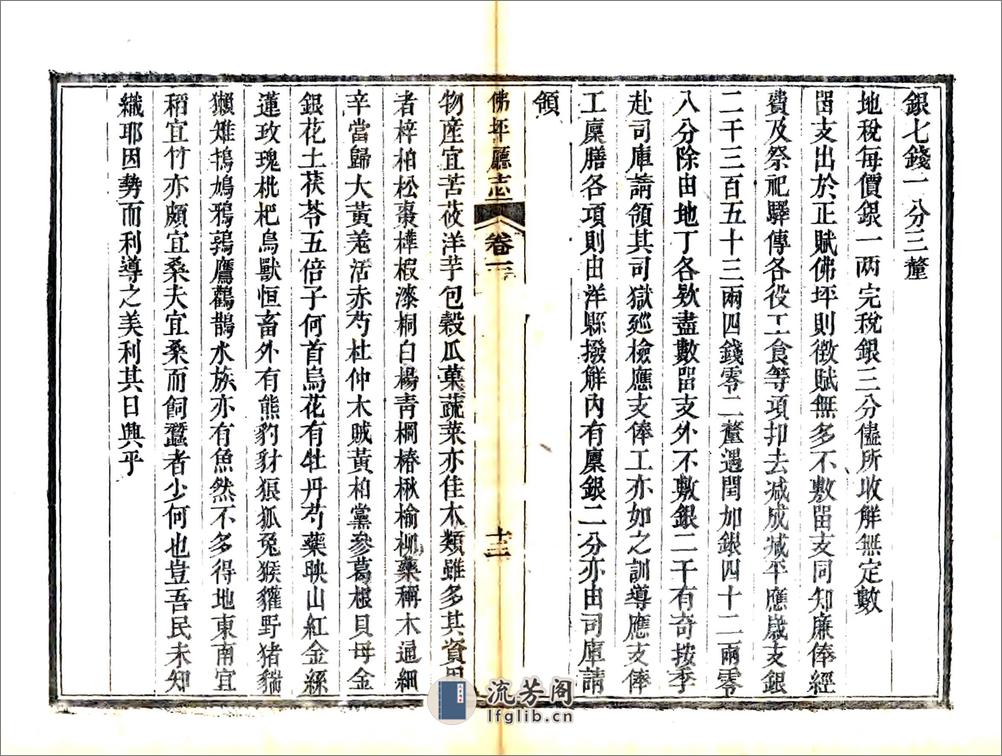 銀七錢一分三釐
地稅每價銀一两完稅銀三分儘所收解無定數
畱支出於正賦佛坪則徵賦無多不敷畱支同知廉俸經
費及祭祀驛傳各役工食等項扣去减成减平應歲支銀
二千三百五十三兩四錢零二釐遇閏加銀四十二兩零
八分除由地丁各欵盡數畱支外不敷銀二千有奇按季
赴司庫請領其司獄廵檢應支俸工亦如之訓導應支俸
工廩膳各項則由洋縣撥解內有廩銀二分亦由司庫請
領
佛坪廳志 卷一 十二
物産宜苦荍洋芋包穀瓜菓蔬菜亦佳木類雖多其資用
者梓柏松棗樺椵漆桐白楊青棡椿楸榆柳藥稱木通細
辛當歸大黃羗活赤芍杜仲木賊黃柏黨參葛根貝母金
銀花土茯苓五倍子何首烏花有牡丹芍藥映山紅金絲
蓮玫瑰枇杷鳥獸恒畜外有熊豹豺狼狐兔猴貛野猪豨
獺雉鴇鳩鴉鶉鷹鸛鵲水族亦有魚然不多得地東南宜
稻宜竹亦頗宜桑夫宜桑而飼蠶者少何也豈吾民未知
織耶因勢而利導之美利其日興乎
流芳阁
lfglib.cn